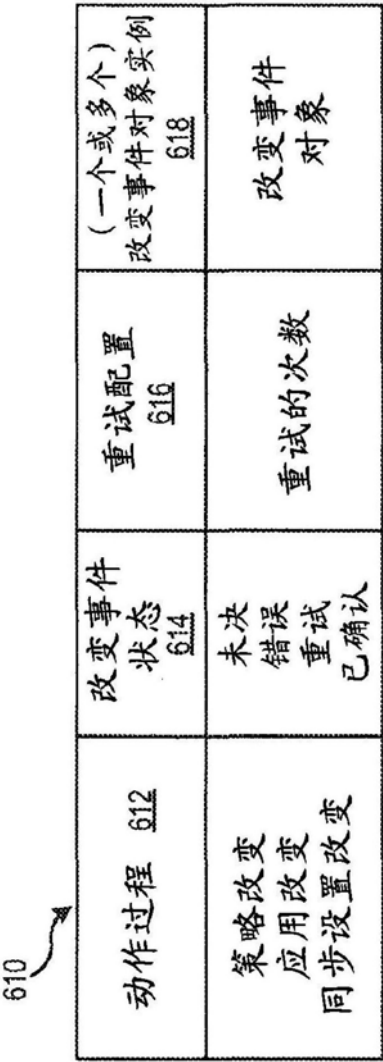 610
动作过程 612
改变事件
状态
614
重试配置
616
(一个或多个)
改变事件对象实例
618
策略改变
应用改变
同步设置改变
未决
错误
重试
已确认
重试的次数
改变事件
对象